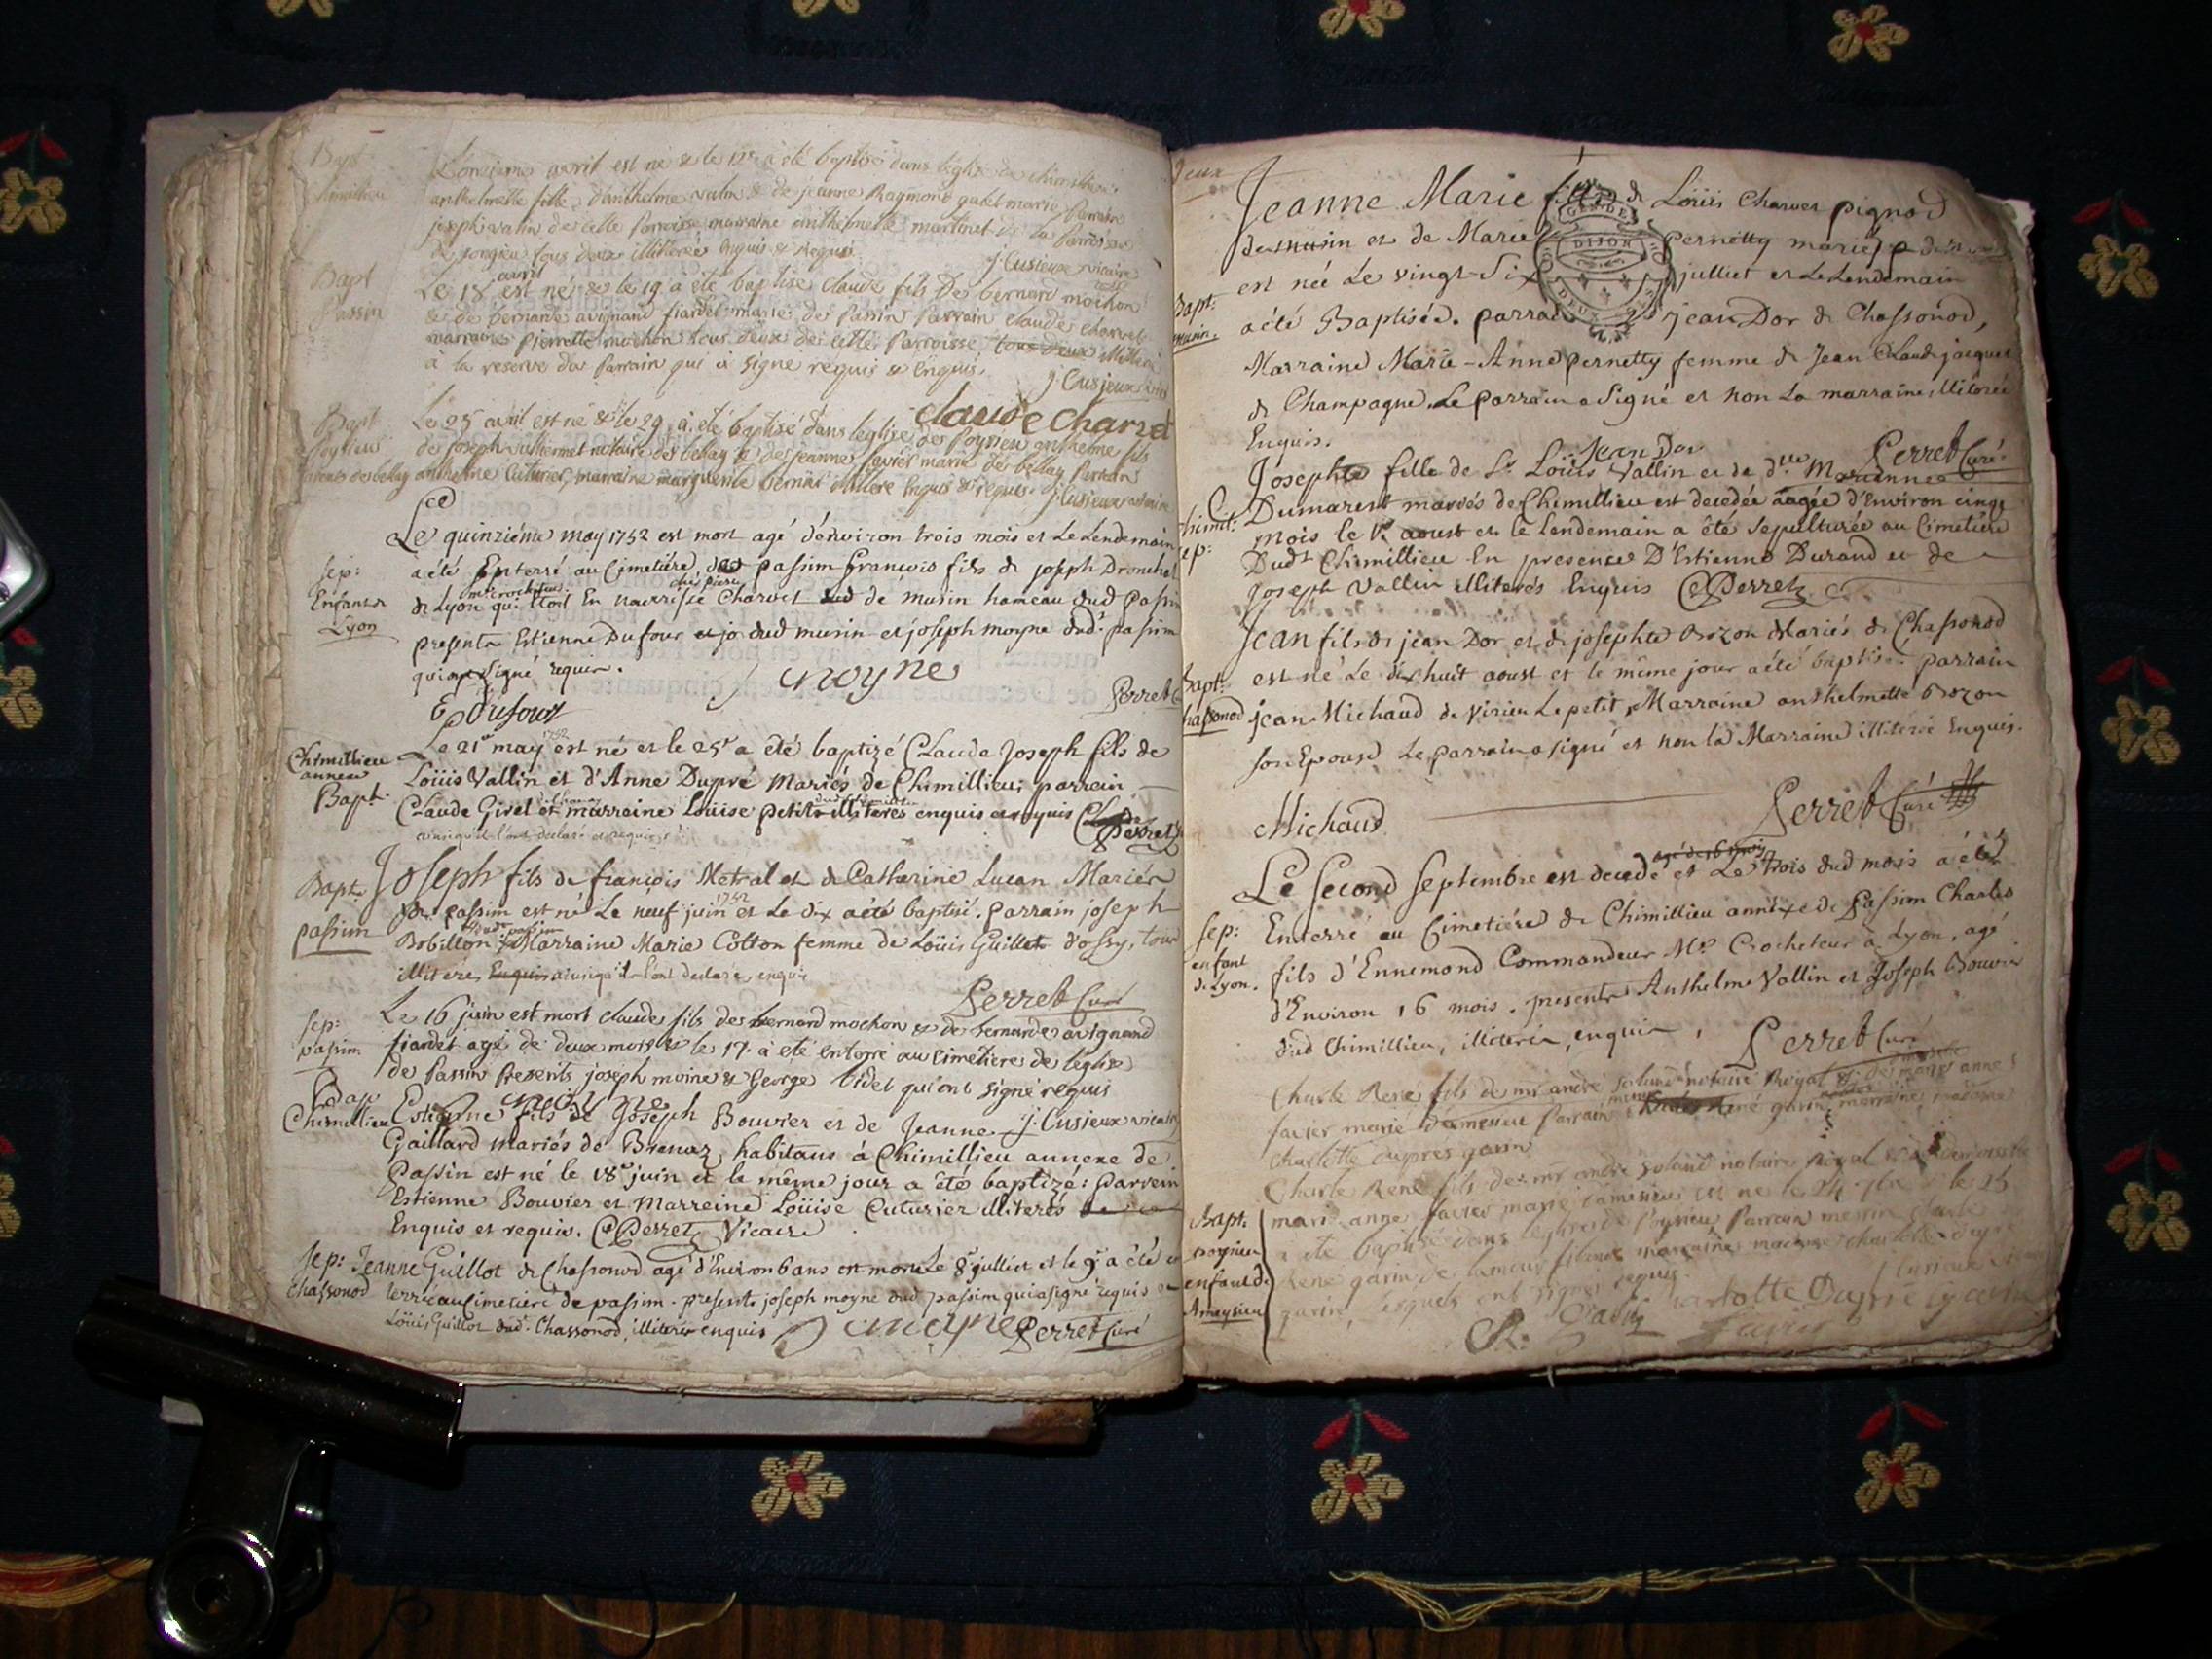 Bapt
L'onzieme avril est né & le 12e a été baptisé dans l'église de
anthelmette fille d'anthelme valin & de jeanne Raymond marie Parrain
joseph valin de cette Paroisse marraine anthelmette martinet de la Paroisse
de jongieu tous deux illiterés enquis & requis. j. Cusieux vicaire
Bapt
Passin
avril
Le 18 est né & le 19 a été baptisé claude fils de bernard mochon
& de bernarde avignand fiardet mariés de Passin Parrain claude charvet
marraine Pierrette mochon tous deux de cette Parroisse tous deux illiterés
à la reserve du Parrain qui a signé requis & enquis. j. Cusieux
claude Charvet
Bapt
Poysieu
Le 25 avril est né & le 29 a été baptisé dans l'église de Poysieu anthelme fils
de joseph vuillermet notaire de bellay & de jeanne favier mariés de bellay Parrain
anthelme Cuturier, marraine marguerite bernard illitere enquis & requis. j. Cusieux vicaire
Le quinziéme may 1752 est mort agé d'environ trois mois et Le Lendemain
sep:
Enfant de
Lyon
a été Enterré au Cimetiére de passim francois fils de joseph Dronchet
mtre crocheteur chés pierre
de Lyon qui étoit En nourrisse Charvet dud de musin hameau dud passin
presents Estienne Dufour dud musin et joseph moyne dud. passim
qui ont signé requis.
J moyne
Perret C
E Dufour
Chimillieu
annexe
Bapt.
1752
Le 21e may est né et le 25e a été baptizé Claude Joseph fils de
Loüis Vallin et d'Anne Dupré Mariés de Chimillieu; parrain
Claude Girel et marraine Loüise petit illiterés enquis et requis C Perret
ainsi qu'il l'ont declaré et requis
Bapt.
passim
Joseph fils de françois Metral et de Catherine Lucan Mariés
1752
de passim est né Le neuf juin et Le dix a été baptisé. parrain joseph
dud. passim
Bobillon Marraine Marie Cotton femme de Loüis Guillot d'ossy, tous
illiterés Enquis ainsi qu'il l'ont declaré, enquis
Perret Curé
sep:
passim
Le 16 juin est mort claude fils de bernard mochon & de bernarde avignand
fiardet agé de deux mois & le 17. a été enterré au cimetiere de l'église
de Passin Presents joseph moine & George bidet qui ont signé requis
j. Cusieux vicaire
moyne
Bap
Chimillieu
Estienne fils de Joseph Bouvier et de Jeanne
Gaillard mariés de Brenaz, habitans à Chimillieu annexe de
Passin est né le 18e juin et le même jour a été baptizé: parrein
Estienne Bouvier et Marreine Loüise Cuturier illiterés
Enquis et requis. C Perret Vicaire
Sep:
Chassonod
Jeanne Guillot de Chassonod agé d'Environ 6 ans est morte Le 8e julliet et le 9e a été en
terrée au Cimetiére de passim. presents joseph moyne dud passim qui a signé requis et
Loüis Guillot dud. Chassonod, illiteré enquis J moyne Perret Curé
deux
GEN DE
DIJON
DEUX
Bapt:
musin.
Jeanne Marie fille de Loüis Charvet pignod
de musin et de Marie pernetty mariés de
est née Le vingt-six julliet et Le Lendemain
a été Baptisée. parrain jean Dor de Chassonod,
Marraine Marie-Anne pernetty femme de Jean Claude jacquet
de Champagne. Le parrain a signé et non La marraine illiterée
Enquis.
Jean Dor
Perret Curé
Chimil:
sep:
Josephte fille de Sr. Loüis Vallin et de dlle Marianne
Dumarest mariés de Chimillieu est decedée aagée d'Environ cinq
mois le 1r. aoust et le Lendemain a été sepulturée au Cimetiére
Dudt Chimillieu En presence D'Estienne Durand et de
Joseph Vallin illiterés Enquis C Perret
Bapt:
Chassonod
Jean fils de jean Dor et de josephte Bozon Mariés de Chassonod
est né Le dix huit aoust et le même jour a été baptisé. parrain
jean Michaud de Virieu Le petit, Marraine anthelmette Bozon
son Epouse Le parrain a signé et non la Marraine illiterée Enquis.
Perret Curé
Michaud
agé de 16 mois
Le second septembre est decedé et Le trois dud mois a été
sep:
enfant
de Lyon.
Enterré au Cimetiére de Chimillieu annéxe de Passim Charles
fils d'Ennemond Commandeur Mre Crocheteur à Lyon, agé
d'Environ 16 mois. presents Anthelme Vallin et Joseph Bouvier
dud Chimillieu, illiterés, enquis, Perret Curé
Charle René fils de mr andré soland notaire Royal & de marie anne
favier marié d'ameisieu Parrain René garin marraine madame
charlotte duprés garin
Bapt:
poysieu
enfant de
Ameysieu
Charle René fils de mr andré soland notaire Royal & de Demoiselle
marie anne favier mariés d'ameisieu est né le 24 7bre & le 25
a été baptisé dans l'église de Poysieu Parrain messire charle
René garin de lamour marraine madame charlotte dupré
garin, lesquels ont signés requis. j. Cusieux
R. Garin charlotte Dupré garin
favier